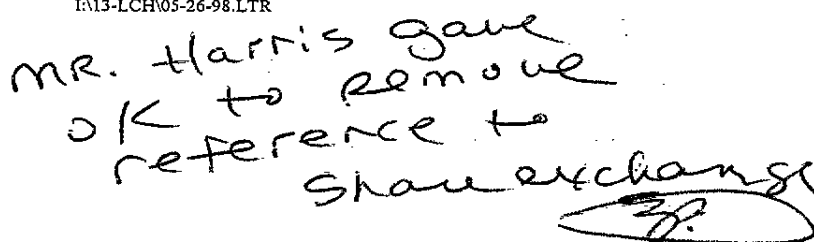 I:\13-LCH\05-26-98.LTR
MR. Harris gave
OK to remove
reference to
share exchange